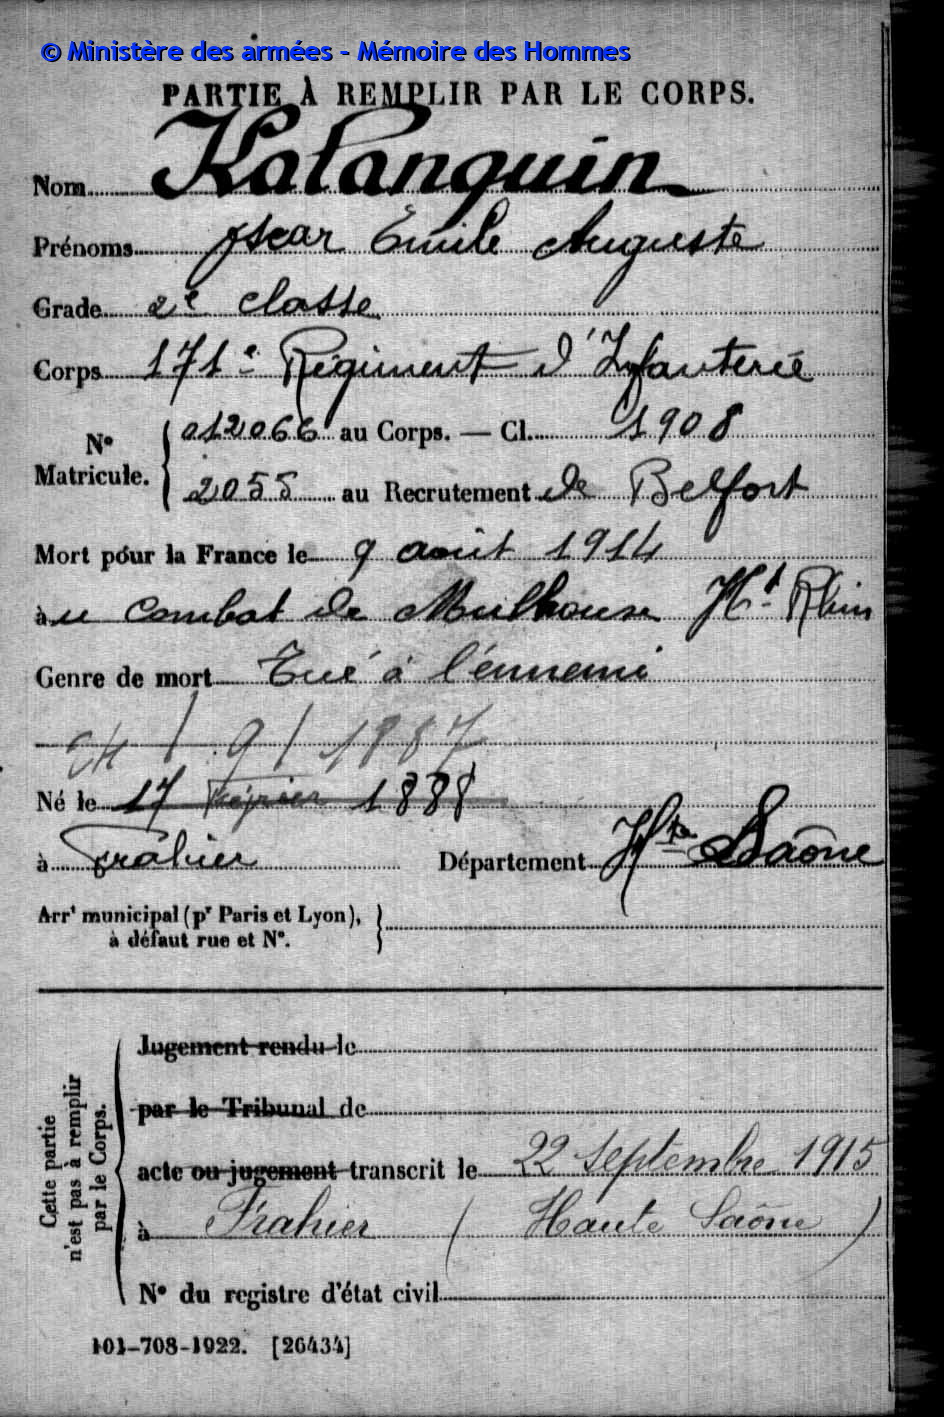 © Ministère des armées - Mémoire des Hommes
PARTIE À REMPLIR PAR LE CORPS.
Nom Kalanquin
Prénoms Oscar Emile Auguste
Grade 2e classe
Corps 171e Régiment d'Infanterie
N° Matricule. { 012066 au Corps. — Cl. 1908
2055 au Recrutement de Belfort
Mort pour la France le 9 août 1914
à u combat de Mulhouse Ht Rhin
Genre de mort Tué à l'ennemi
/ 9 / 1887
Né le 17 Février 1888
à Frahier Département Hte Saône
Arrt municipal (pr Paris et Lyon), }
à défaut rue et N°.
Cette partie
n'est pas à remplir
par le Corps.
Jugement rendu le
par le Tribunal de
acte ou jugement transcrit le 22 septembre 1915
à Frahier ( Haute Saône )
N° du registre d'état civil
101-708-1922. [26434]